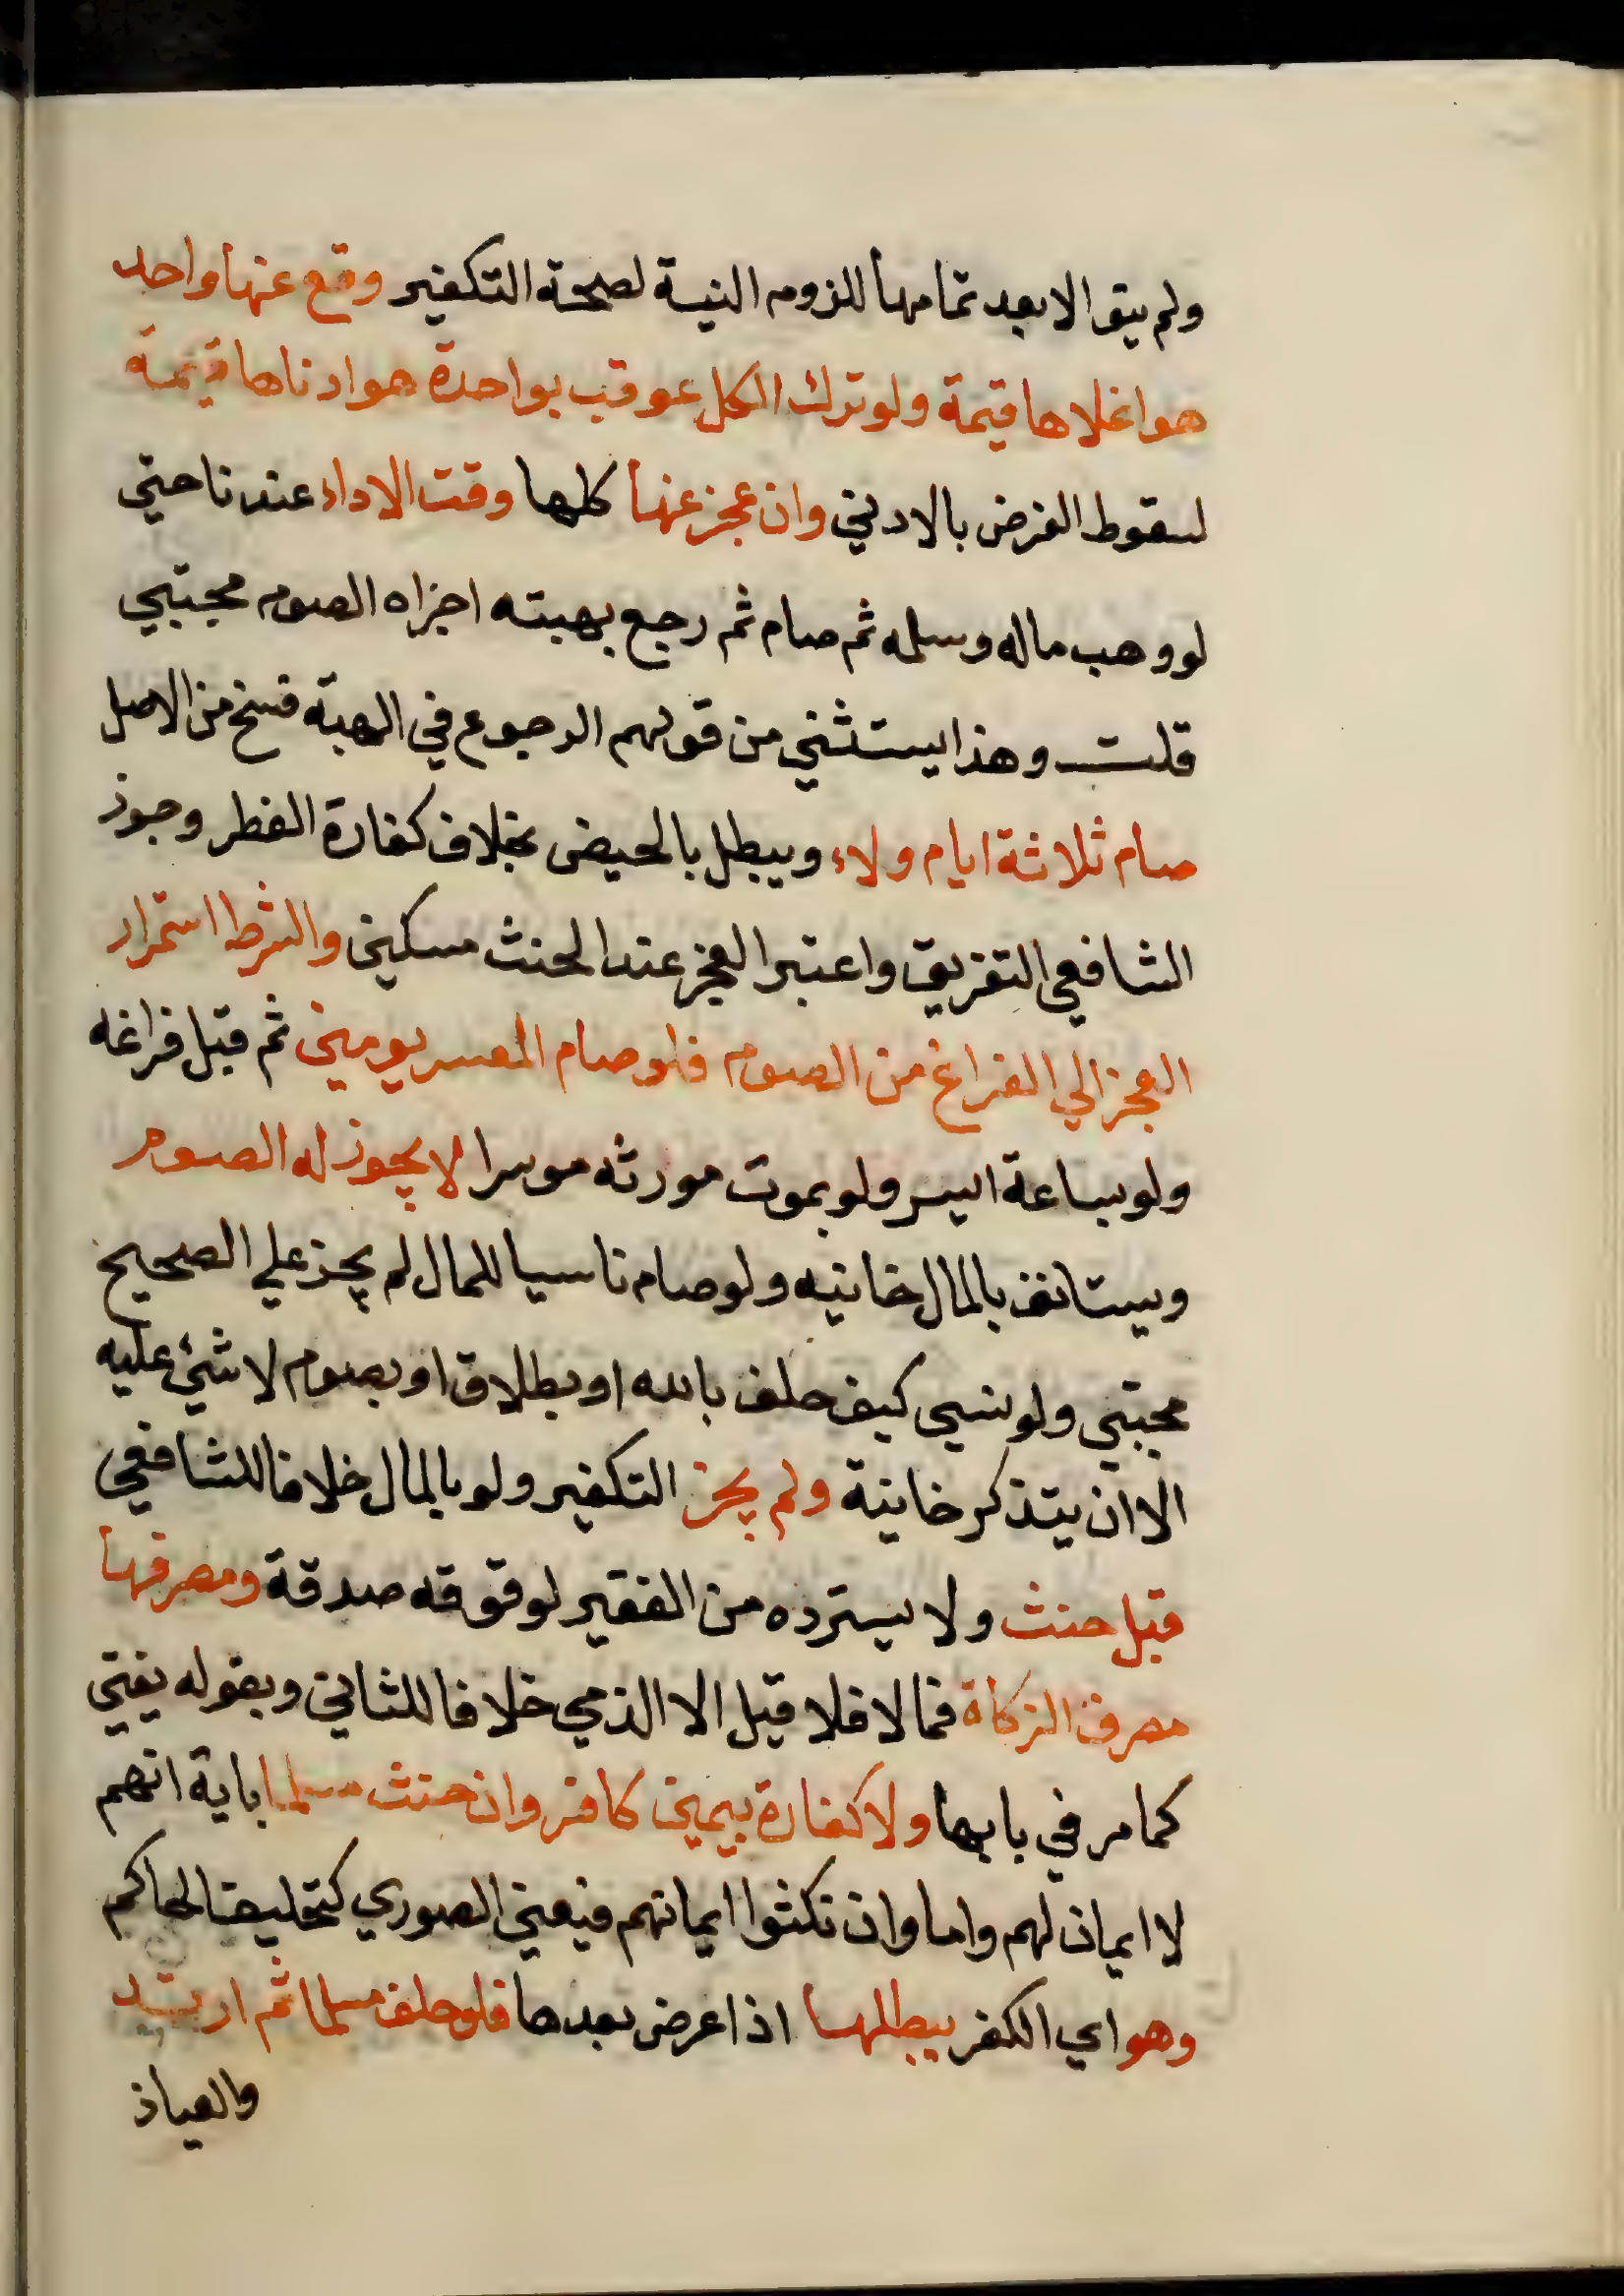 ولم ينو الا بعد تمامها للزوم النية لصحة التكفير وقع عنها واحد
هو اغلاها قيمة ولو ترك الكل عوقب بواحدة هو ادناها قيمة
لسقوط الفرض بالادني وان عجز عنها كلها وقت الاداء عندنا حتي
لو وهب ماله وسلمه ثم صام ثم رجع بهبته اجزاه الصوم مجتبي
قلت وهذا يستثني من قولهم الرجوع في الهبة فسخ من الاصل
صام ثلاثة ايام ولاء ويبطل بالحيض بخلاف كفارة الفطر وجوز
الشافعي التفريق واعتبر العجز عند الحنث مسكين والشرط استمرار
العجز الي الفراغ من الصوم فلو صام المعسر يومين ثم قبل فراغه
ولو بساعة ايسر ولو بموت مورثه موسرا لا يجوز له الصوم
ويستانف بالمال خانيه ولو صام ناسيا للمال لم يجز علي الصحيح
مجتبي ولو نسي كيف حلف بالله او بطلاق او بصوم لا شئ عليه
الا ان يتذكر خانية ولم يجز التكفير ولو بالمال خلافا للشافعي
قبل حنث ولا يسترده من الفقير لوقوقه صدقة ومصرفها
مصرف الزكاة فما لا فلا قيل الا الذمي خلافا للثاني وبقوله يفتي
كما مر في بابها ولا كفارة بيمين كافر وان حنث مسلما باية انهم
لا ايمان لهم واما وان نكثوا ايمانهم فيعني الصوري كتحليف الحاكم
وهو اي الكفر يبطلها اذا عرض بعدها فلو حلف مسلما ثم ارتد
والعياذ